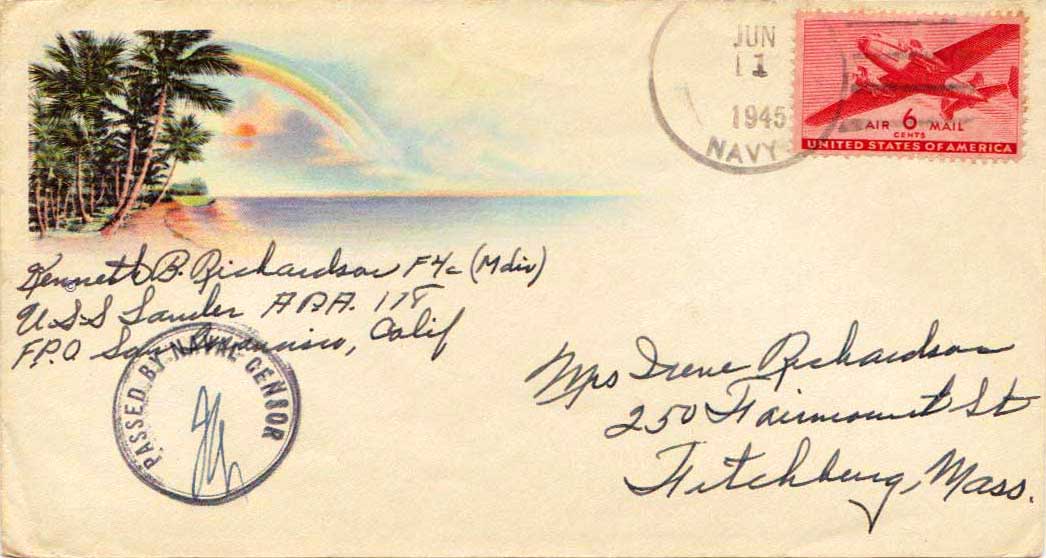 JUN
11
1945
NAVY
AIR 6 MAIL
CENTS
UNITED STATES OF AMERICA
Kenneth B. Richardson F 1/c (M div)
U.S.S Lander APA. 178
F.P.O San Francisco, Calif
PASSED BY NAVAL CENSOR
Mrs Irene Richardson
250 Fairmount St
Fitchburg, Mass.